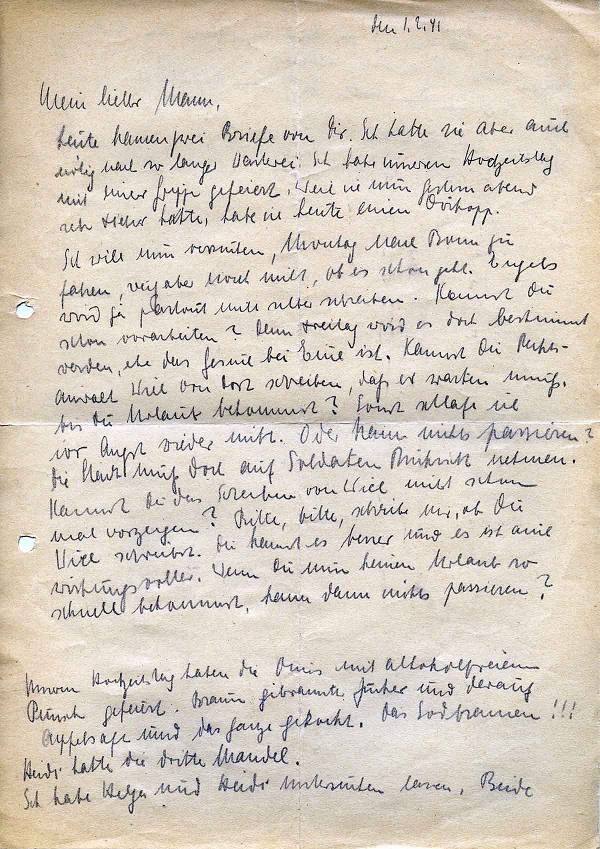 den 1.2.41
Mein lieber Mann,
heute kamen zwei Briefe von Dir. Ich hatte sie aber auch
nötig nach so langer Warterei. Ich habe unseren Hochzeitstag
mit einer Grippe gefeiert. Weil ich nun gestern abend
sehr Fieber hatte, habe ich heute einen
Ich will nun versuchen, Montag nach Bonn zu
fahren, weiß aber noch nicht, ob es schon geht. Engels
wird ja partout nicht selber schreiben. Kannst Du
schon vorarbeiten? Denn Freitag wird es doch bestimmt
werden, ehe das Gesuch bei Euch ist. Kannst Du Rechts-
anwalt Wiel von dort schreiben, daß er warten muß,
bis Du Urlaub bekommst? Sonst schlafe ich
vor Angst wieder nicht. Oder kann nichts passieren?
Die Stadt muß doch auf Soldaten Rücksicht nehmen.
Kannst Du das Schreiben von Wiel nicht schon
mal vorzeigen? Bitte, bitte, schreibe mir, ob Du
Wiel schreibst. Du kannst es besser und es ist auch
wirkungsvoller. Wenn Du nun keinen Urlaub so
schnell bekommst, kann dann nichts passieren?
Unseren Hochzeitstag haben die Omis mit alkoholfreiem
Punsch gefeiert. Braun gebrannte Zucker und darauf
Apfelsaft und das ganze gekocht. Das Sodbrennen!!!
Heidi hatte die dritte Mandel.
Ich habe Helga und Heidi untersuchen lassen. Beide